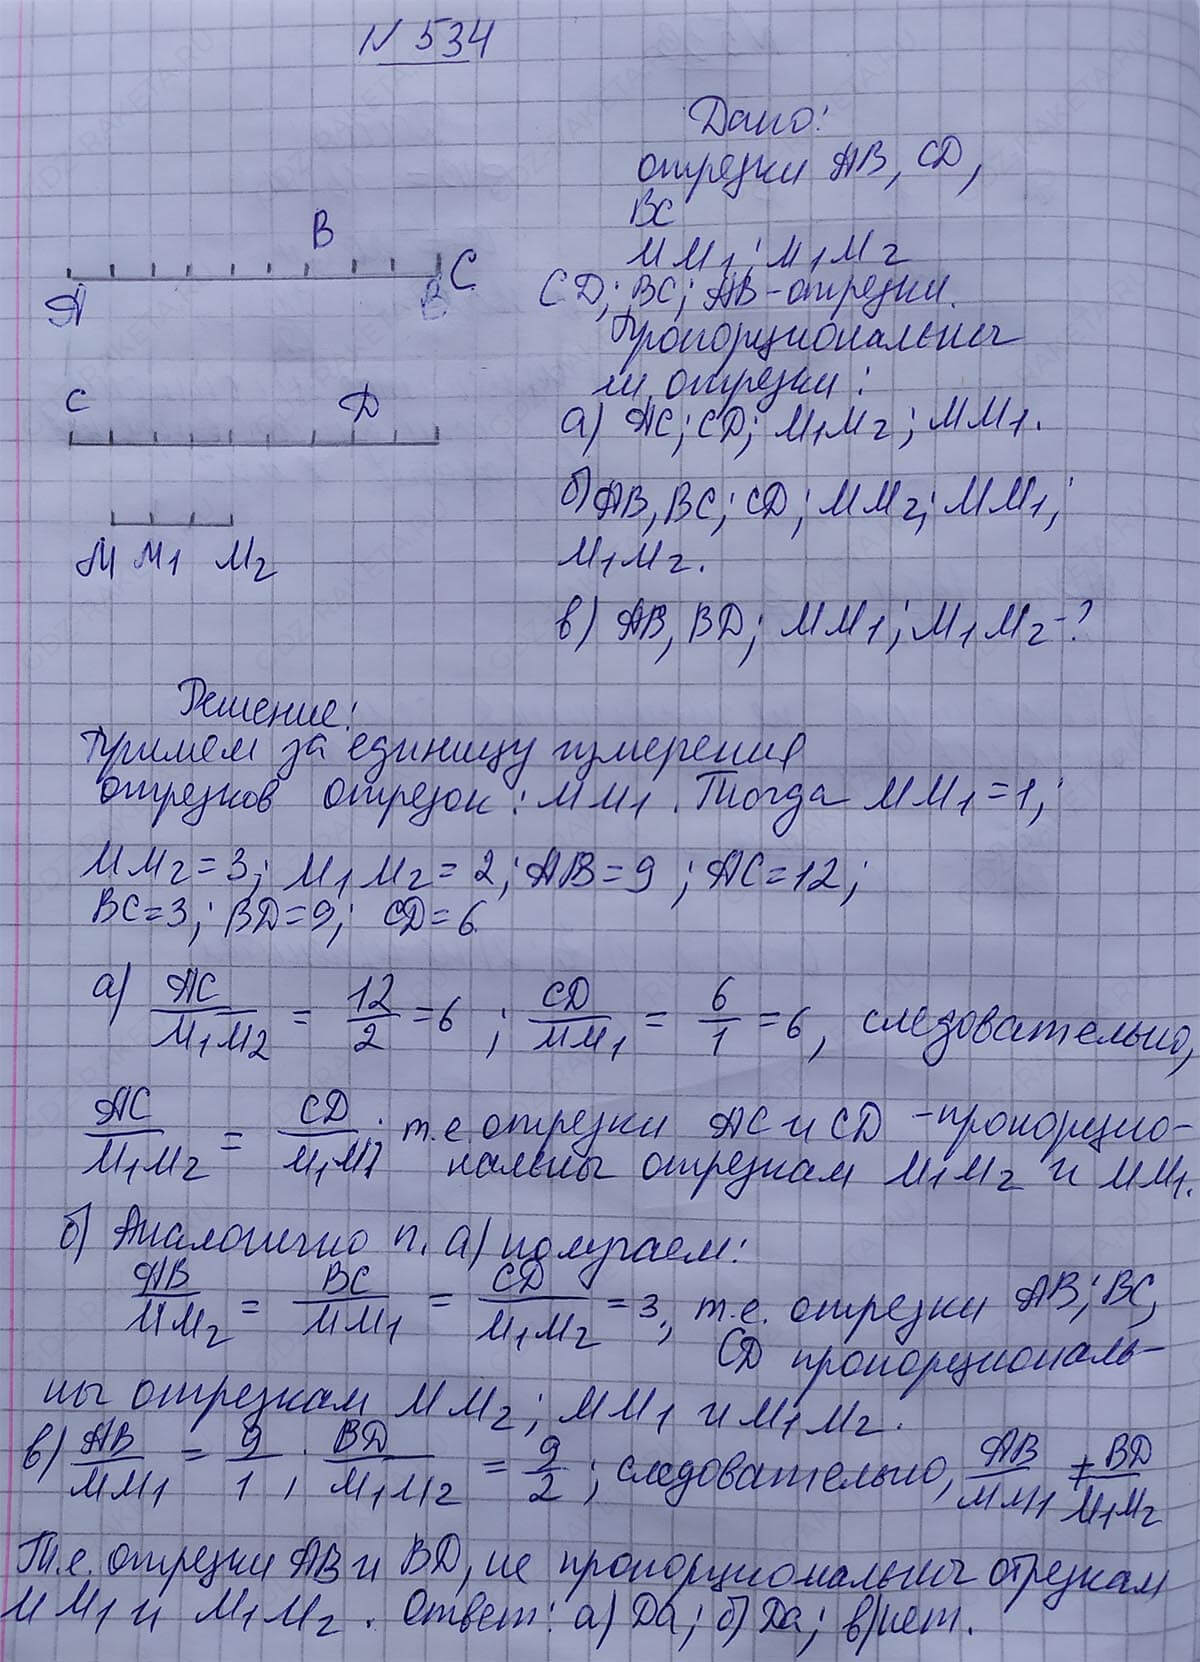 N 534
Дано:
отрезки AB, CD,
BC
MM₁; M₁M₂
CD; BC; AB - отрезки.
Пропорциональны
ли отрезки:
а) AC; CD; M₁M₂; MM₁.
б) AB, BC; CD; MM₂; MM₁;
M₁M₂.
в) AB, BD; MM₁; M₁M₂ - ?
B
A B C
C D
M M₁ M₂
Решение:
Примем за единицу измерения
отрезков отрезок: MM₁. Тогда MM₁ = 1;
MM₂ = 3; M₁M₂ = 2; AB = 9; AC = 12;
BC = 3; BD = 9; CD = 6
а) AC/M₁M₂ = 12/2 = 6; CD/MM₁ = 6/1 = 6, следовательно,
AC/M₁M₂ = CD/M₁M₁; т.е. отрезки AC и CD - пропорцио-
нальны отрезкам M₁M₂ и MM₁.
б) Аналогично п. а) получаем:
AB/MM₂ = BC/MM₁ = CD/M₁M₂ = 3, т.е. отрезки AB; BC;
CD пропорциональ-
ны отрезкам MM₂; MM₁ и M₁M₂.
в) AB/MM₁ = 9/1; BD/M₁M₂ = 9/2; следовательно, AB/MM₁ ≠ BD/M₁M₂
Т.е. отрезки AB и BD, не пропорциональны отрезкам
MM₁ и M₁M₂. Ответ: а) Да; б) Да; в) нет.